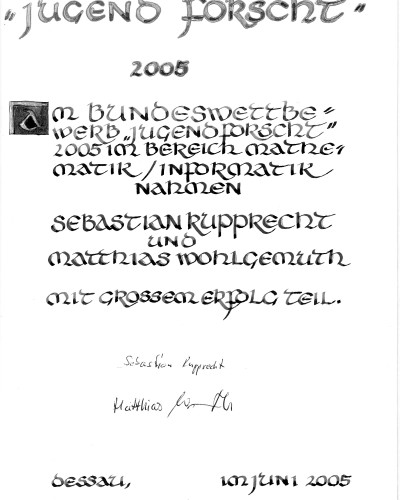 "JUGEND FORSCHT"
2005
AM BUNDESWETTBE=
WERB „JUGENDFORSCHT"
2005 IM BEREICH MATHE=
MATIK/INFORMATIK
NAHMEN
SEBASTIAN RUPPRECHT
UND
MATTHIAS WOHLGEMUTH
MIT GROSSEM ERFOLG TEIL.
Sebastian Rupprecht
Matthias
DESSAU, IM JUNI 2005